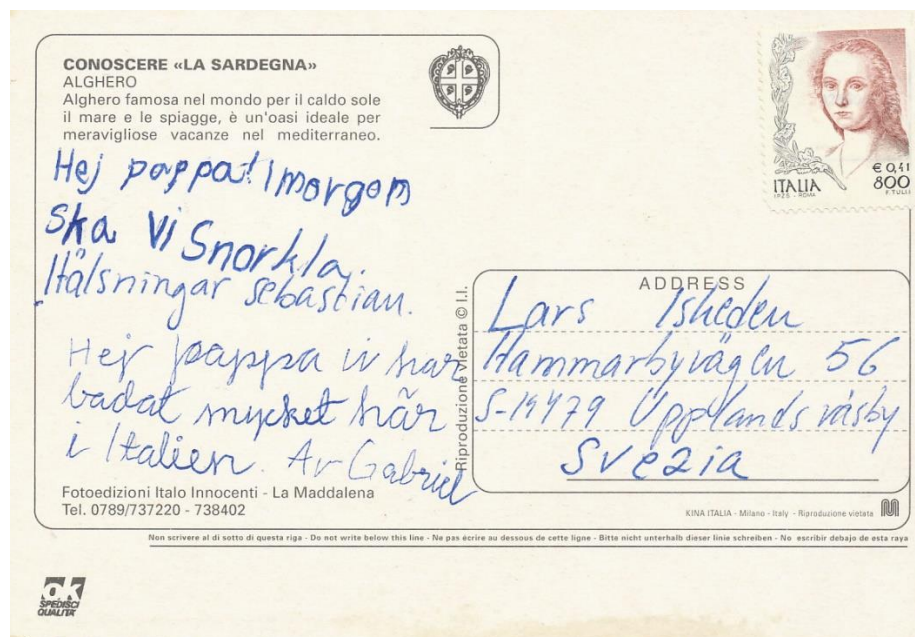 CONOSCERE «LA SARDEGNA»
ALGHERO
Alghero famosa nel mondo per il caldo sole
il mare e le spiagge, è un'oasi ideale per
meravigliose vacanze nel mediterraneo.
€ 0,41
800
ITALIA
F. TULLI
I.P.Z.S. - ROMA
Hej pappa! Imorgom
ska vi Snorkla.
Hälsningar sebastian.
Hej pappa vi har
badat mycket här
i Italien. Av Gabriel
Fotoedizioni Italo Innocenti - La Maddalena
Tel. 0789/737220 - 738402
Riproduzione vietata © I.I.
ADDRESS
Lars Isheden
Hammarbyvägen 56
S-19479 Upplands väsby
Svezia
KINA ITALIA - Milano - Italy - Riproduzione vietata
Non scrivere al di sotto di questa riga - Do not write below this line - Ne pas écrire au dessous de cette ligne - Bitte nicht unterhalb dieser linie schreiben - No escribir debajo de esta raya
ok
SPEDISCI
QUALITA'